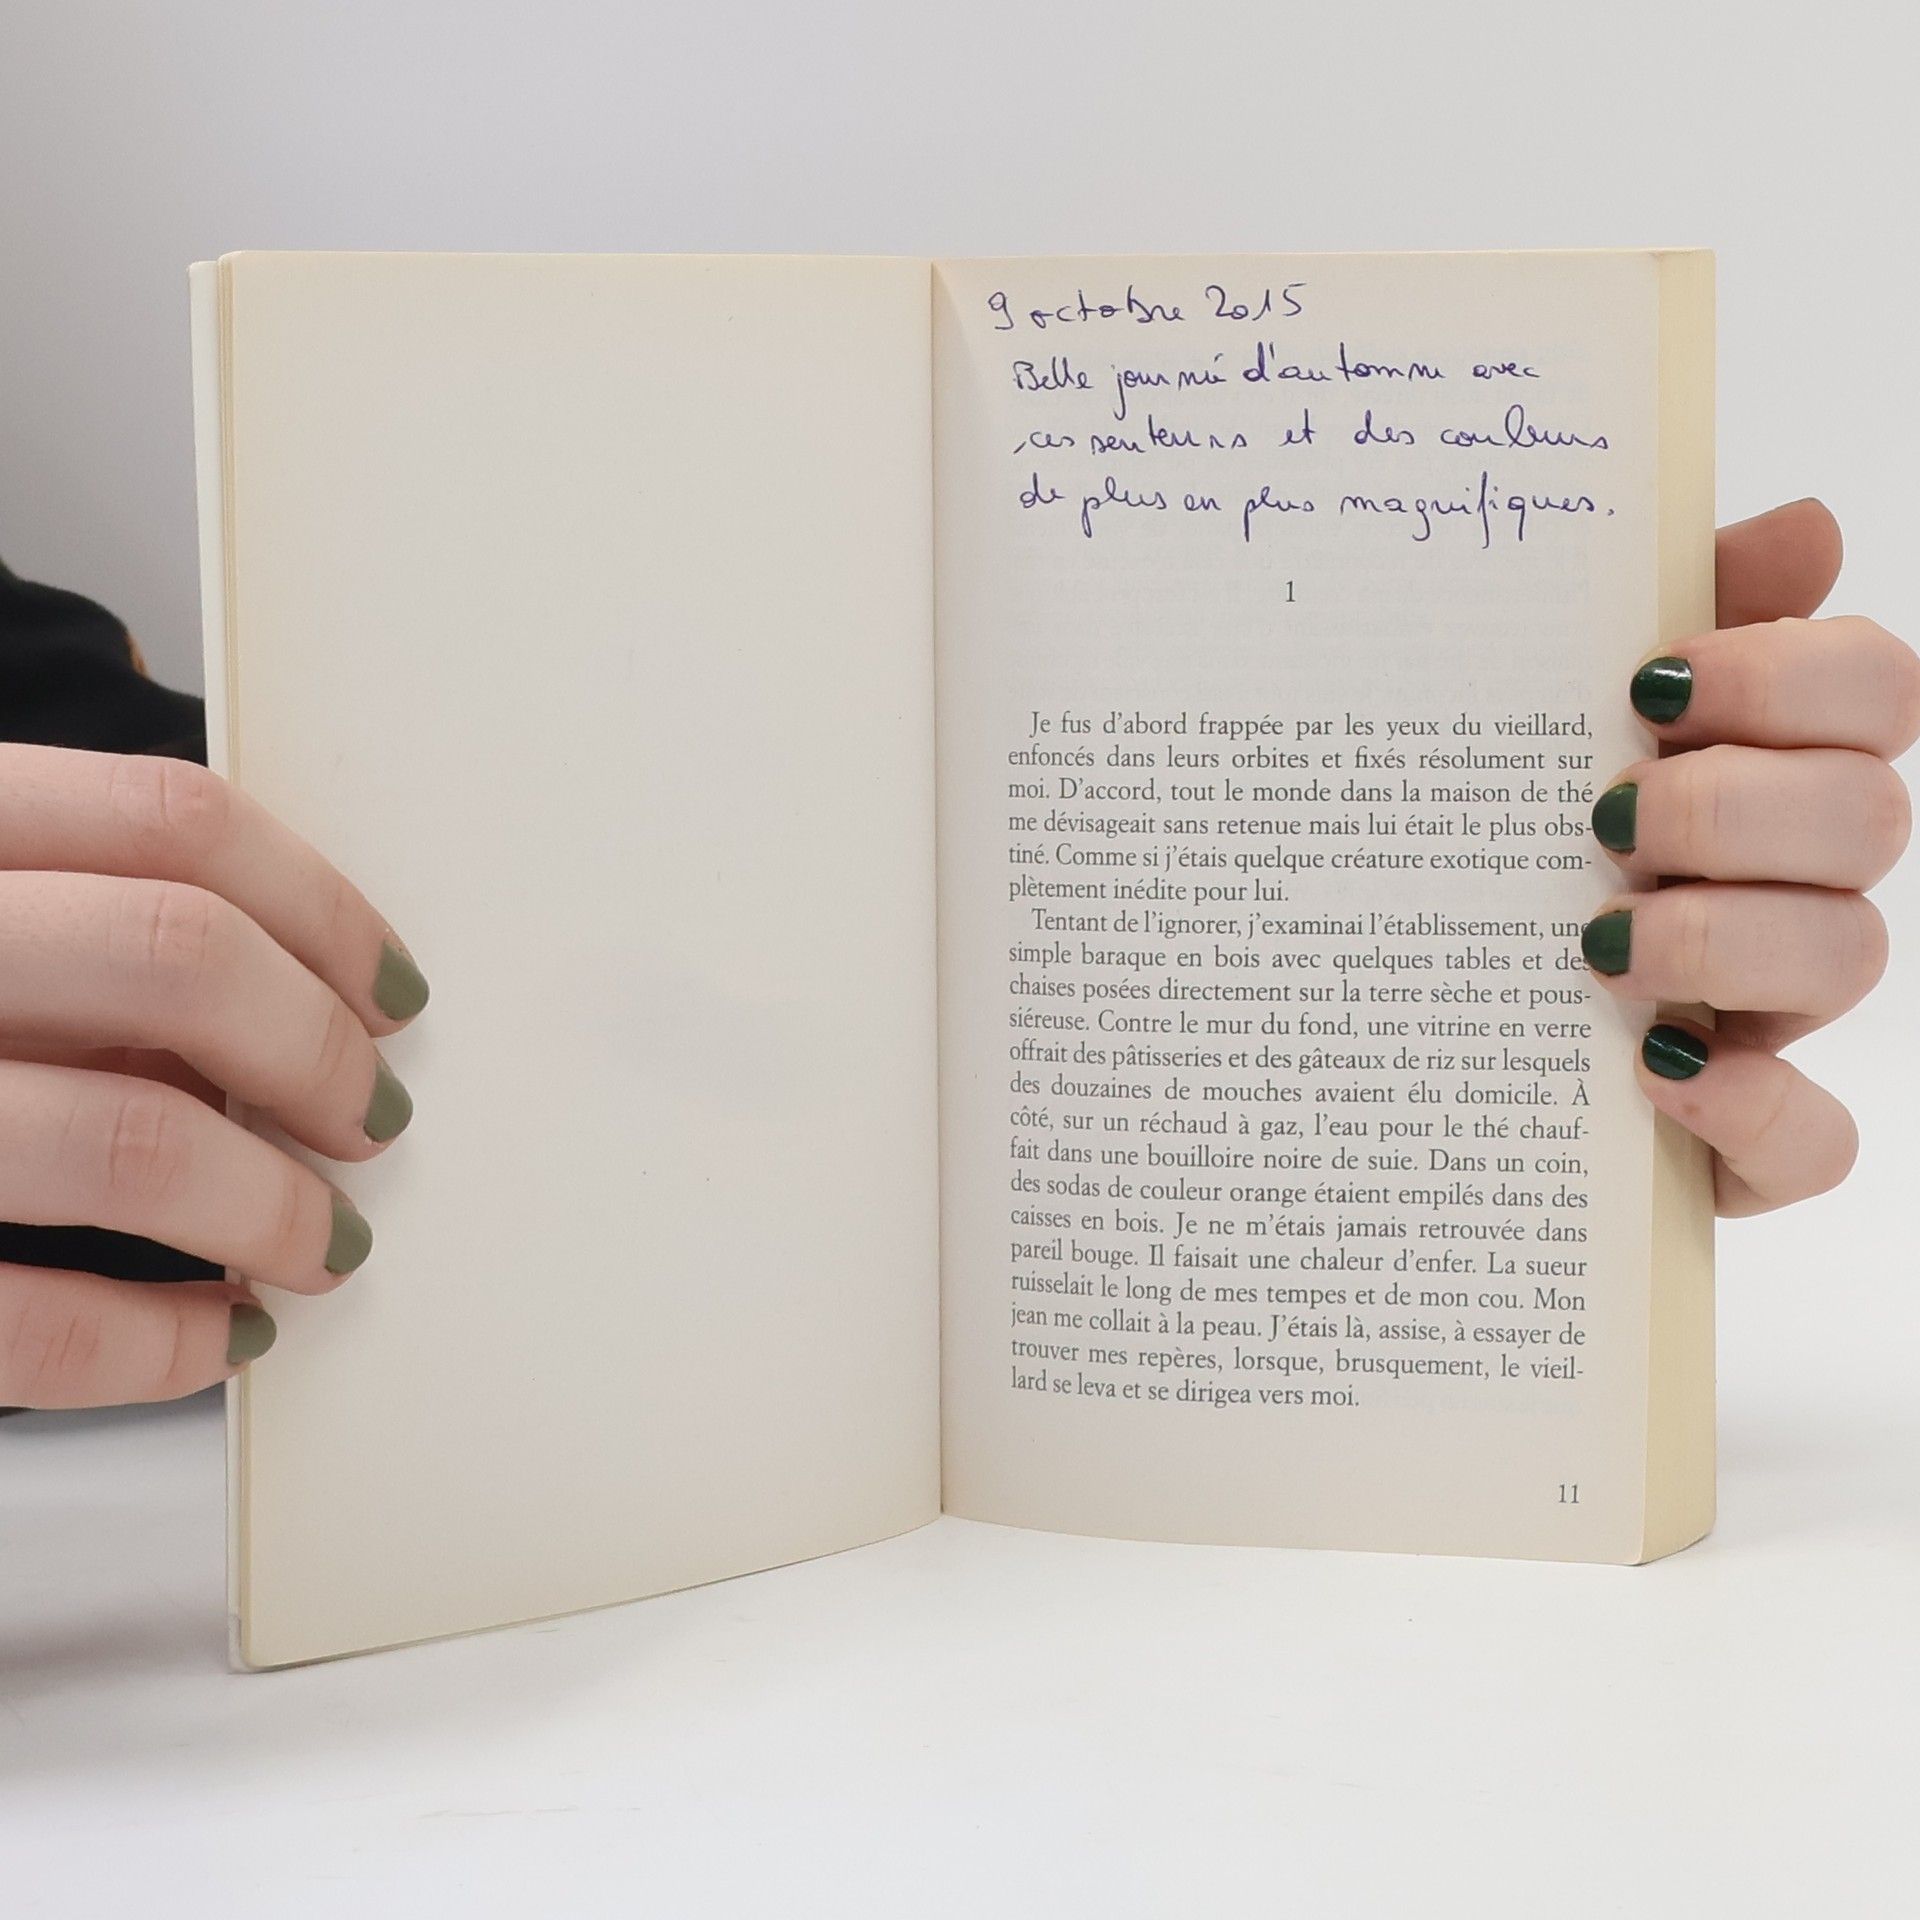 9 octobre 2015
Belle journée d'automne avec
ces senteurs et des couleurs
de plus en plus magnifiques.
1
Je fus d'abord frappée par les yeux du vieillard,
enfoncés dans leurs orbites et fixés résolument sur
moi. D'accord, tout le monde dans la maison de thé
me dévisageait sans retenue mais lui était le plus obs-
tiné. Comme si j'étais quelque créature exotique com-
plètement inédite pour lui.
Tentant de l'ignorer, j'examinai l'établissement, une
simple baraque en bois avec quelques tables et des
chaises posées directement sur la terre sèche et pous-
siéreuse. Contre le mur du fond, une vitrine en verre
offrait des pâtisseries et des gâteaux de riz sur lesquels
des douzaines de mouches avaient élu domicile. À
côté, sur un réchaud à gaz, l'eau pour le thé chauf-
fait dans une bouilloire noire de suie. Dans un coin,
des sodas de couleur orange étaient empilés dans des
caisses en bois. Je ne m'étais jamais retrouvée dans
pareil bouge. Il faisait une chaleur d'enfer. La sueur
ruisselait le long de mes tempes et de mon cou. Mon
jean me collait à la peau. J'étais là, assise, à essayer de
trouver mes repères, lorsque, brusquement, le vieil-
lard se leva et se dirigea vers moi.
11